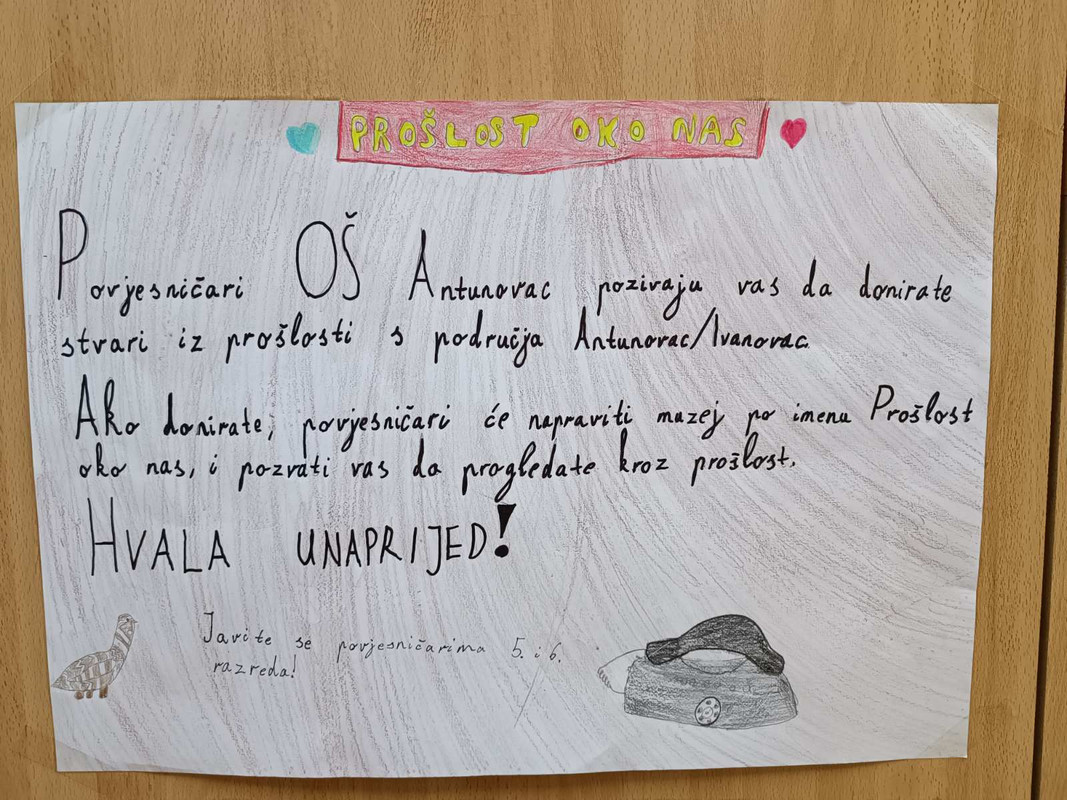 PROŠLOST OKO NAS
Povjesničari OŠ Antunovac pozivaju vas da donirate
stvari iz prošlosti s područja Antunovac/Ivanovac.
Ako donirate, povjesničari će napraviti muzej po imenu Prošlost
oko nas, i pozvati vas da progledate kroz prošlost.
HVALA UNAPRIJED!
Javite se povjesničarima 5. i 6.
razreda!